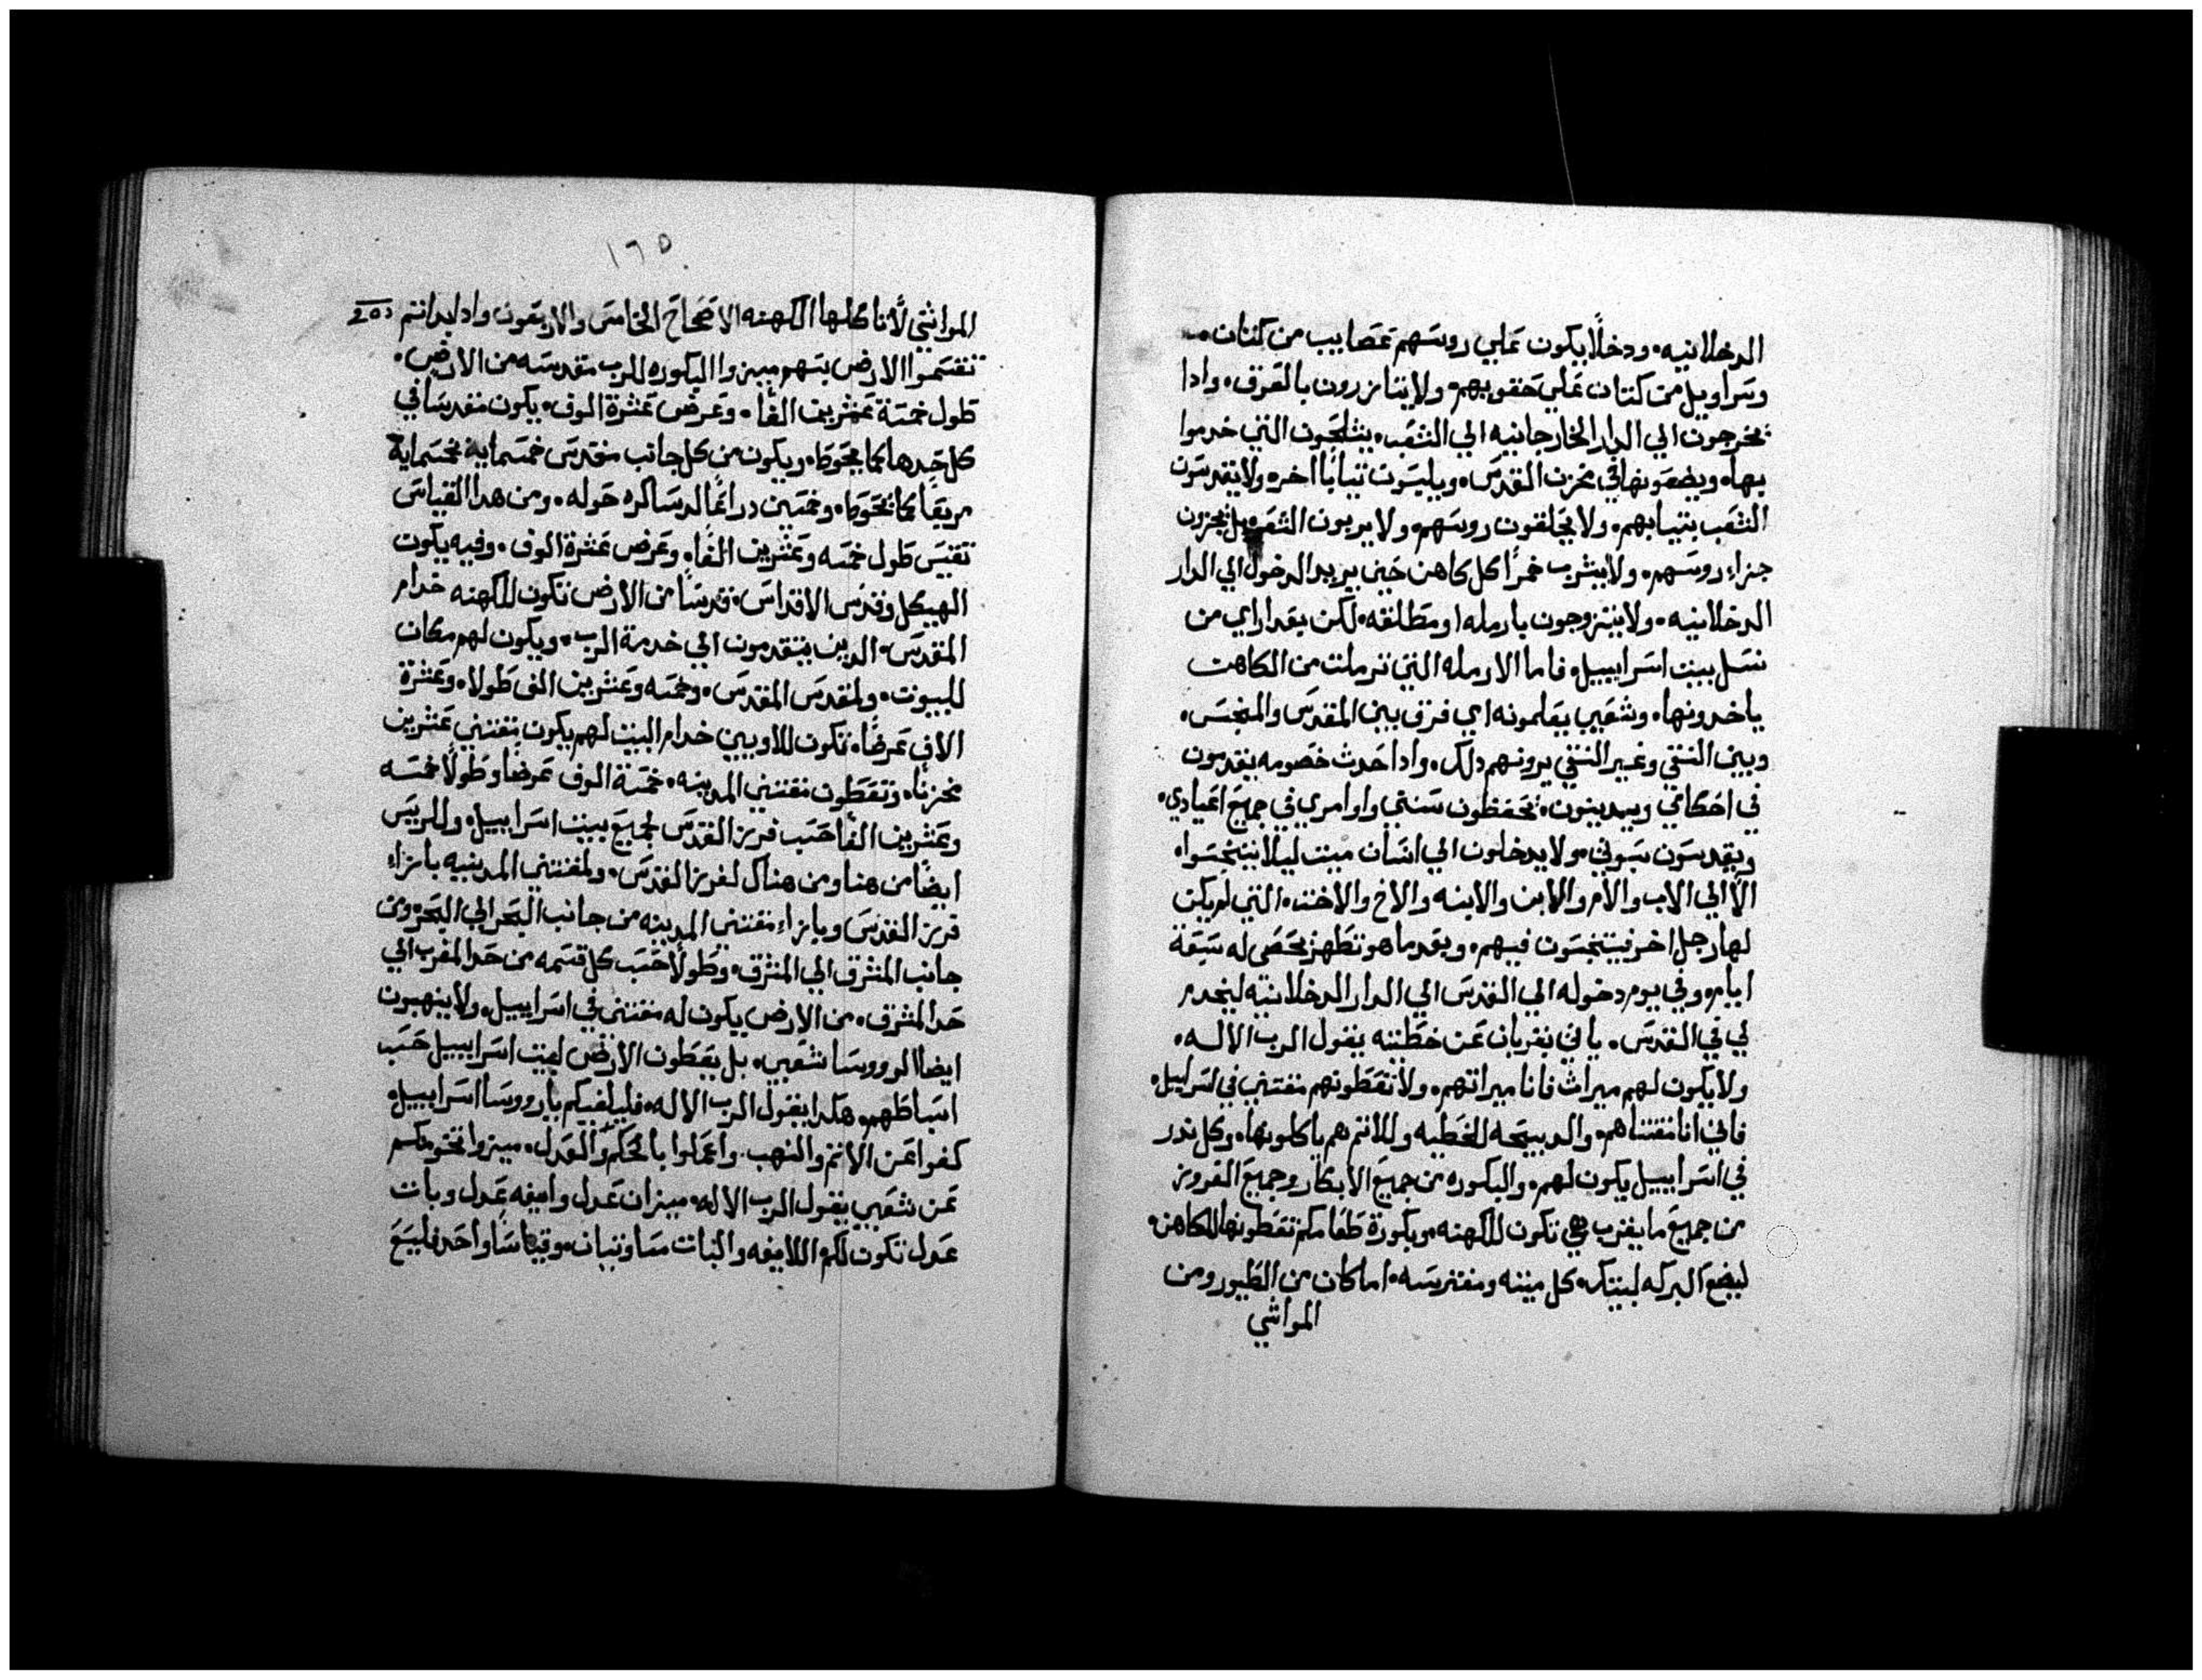 الدخلانيه. ودخلًا يكون عَلي روسَهم عَصَايب من كتان.
وسَراويل من كتان عَلي حَقوبهم. ولا يتازرون بالعَرق. وادا
يخرجون الي الدار الخارجانيه الي الشعَب. يشلحَون التي خدموا
بها. ويضعَونها في مخزن القدسَ. ويلبسَون تيابًا اخره ولا يقدسَون
الشعَب بتيابهم. ولا يحَلقون روسَهم. ولا يربون الشعَر. بل يجزون
جزاء روسَهم. ولا يشرب خمرًا كل كاهن حَين يريد الدخول الي الدار
الدخلانيه. ولا يتزوجون بارمله او مطَلقه. لكن بعَداراي من
نسَل بيت اسَراييل. فاما الارمله التي ترملت من الكاهن
ياخدونها. وشعَبي يعَلمونه اي فرق بين المقدسَ والمنجسَ.
وبين النقي وغير النقي يرونهم دلك. وادا حَدث خصَومه يقدمون
في احَكامي ويدينون. يحَفظون سَنتي واوامري في جميعَ اعَيادي.
ويقدسَون سَبوتي. ولا يدخلون الي انسَان ميت ليلا يتنجسَوا.
الا الي الاب والام والابن والابنه والاخ والاخت. التي لم يكن
لها رجل اخر فيتنجسَون فيهم. وبعَد ما هو تطَهر يحَصَي له سَبعَة
ايام. وفي يوم دخوله الي القدسَ الي الدار الدخلانيه ليخدم
لي في القدسَ. ياتي بقربان عَن خطَيته يقول الرب الاله.
ولا يكون لهم ميراث فانا ميراتهم. ولا تعَطَونهم مقتني في اسَراييل.
فاني انا مقتناهم. والدبيحَه للخطَيه وللاتم هم ياكلونها. وكل ندر
في اسَراييل يكون لهم. والبكوره من جميعَ الابكار وجميعَ القروبز
من جميعَ ما يقرب هي تكون للكهنه. وبكورة طَعَامكم تعَطَونها للكاهن.
ليضعَ البركه لبيتك. كل ميته ومفترسَه. اما كان من الطَيور ومن
المواشي
١٦٥
المواشي لا تاكلها الكهنه الاصَحَاحَ الخامسَ والاربعَون وادا بداتم
تقسَموا الارض بسَهم ميزوا البكوره للرب مقدسَه من الارض.
طَول خمسَة عَشرين الفًا. وعَرض عَشرة الوف. يكون مقدسًا في
كل حَدها كما يحَوطَ. ويكون من كل جانب مقدسَ خمسَمايه بخمسَماية
مربعَا كما تحَوطَ. وخمسَين دراعًا لدسَاكره حَوله. ومن هدا القياسَ
تقيسَ طَول خمسَه وعَشرين الفًا. وعَرض عَشرة الوف. وفيه يكون
الهيكل وقدسَ الاقداسَ. قدسًَا من الارض تكون للكهنه خدام
المقدسَ. الدين يتقدمون الي خدمة الرب. ويكون لهم مكان
للبيوت. ولمقدسَ المقدسَ. وخمسَه وعَشرين الف طَولا. وعَشرة
الاف عَرضًا. تكون للاويين خدام البيت لهم يكون بمقتني عَشرين
مخزنًا. وتعَطَون مقتني المدينه. خمسَة الوف عَرضًا وطَولًا خمسَه
وعَشرين الفًا حَسَب فريز القدسَ لجميعَ بيت اسَراييل. وللريسَ
ايضًا من هنا ومن هناك لفريز القدسَ. ولمقتني المدينيه بازاء
فريز القدسَ وبازاء مقتني المدينه من جانب البحَر الي البحَر ومن
جانب المشرق الي المشرق. وطَولًا حَسَب كل قسَمه من حَد المغرب الي
حَد المشرق. من الارض يكون له مقتني في اسَراييل. ولا ينهبون
ايضا الرووسَا شعَبي. بل يعَطَون الارض لبيت اسَراييل حَسَب
اسَباطَهم. هكدا يقول الرب الاله. فليلفيكم يارووسَا اسَراييل.
كفوا عَن الاتم والنهب. واعَملوا بالحَكم والعَدل. ميزوا تخومكم
عَن شعَبي يقول الرب الاله. ميزان عَدل وايفه عَدل وبات
عَدل تكون لكم. اللايفه والبات مسَاوتبان. وقياسًَا واحَد فليبَعَ